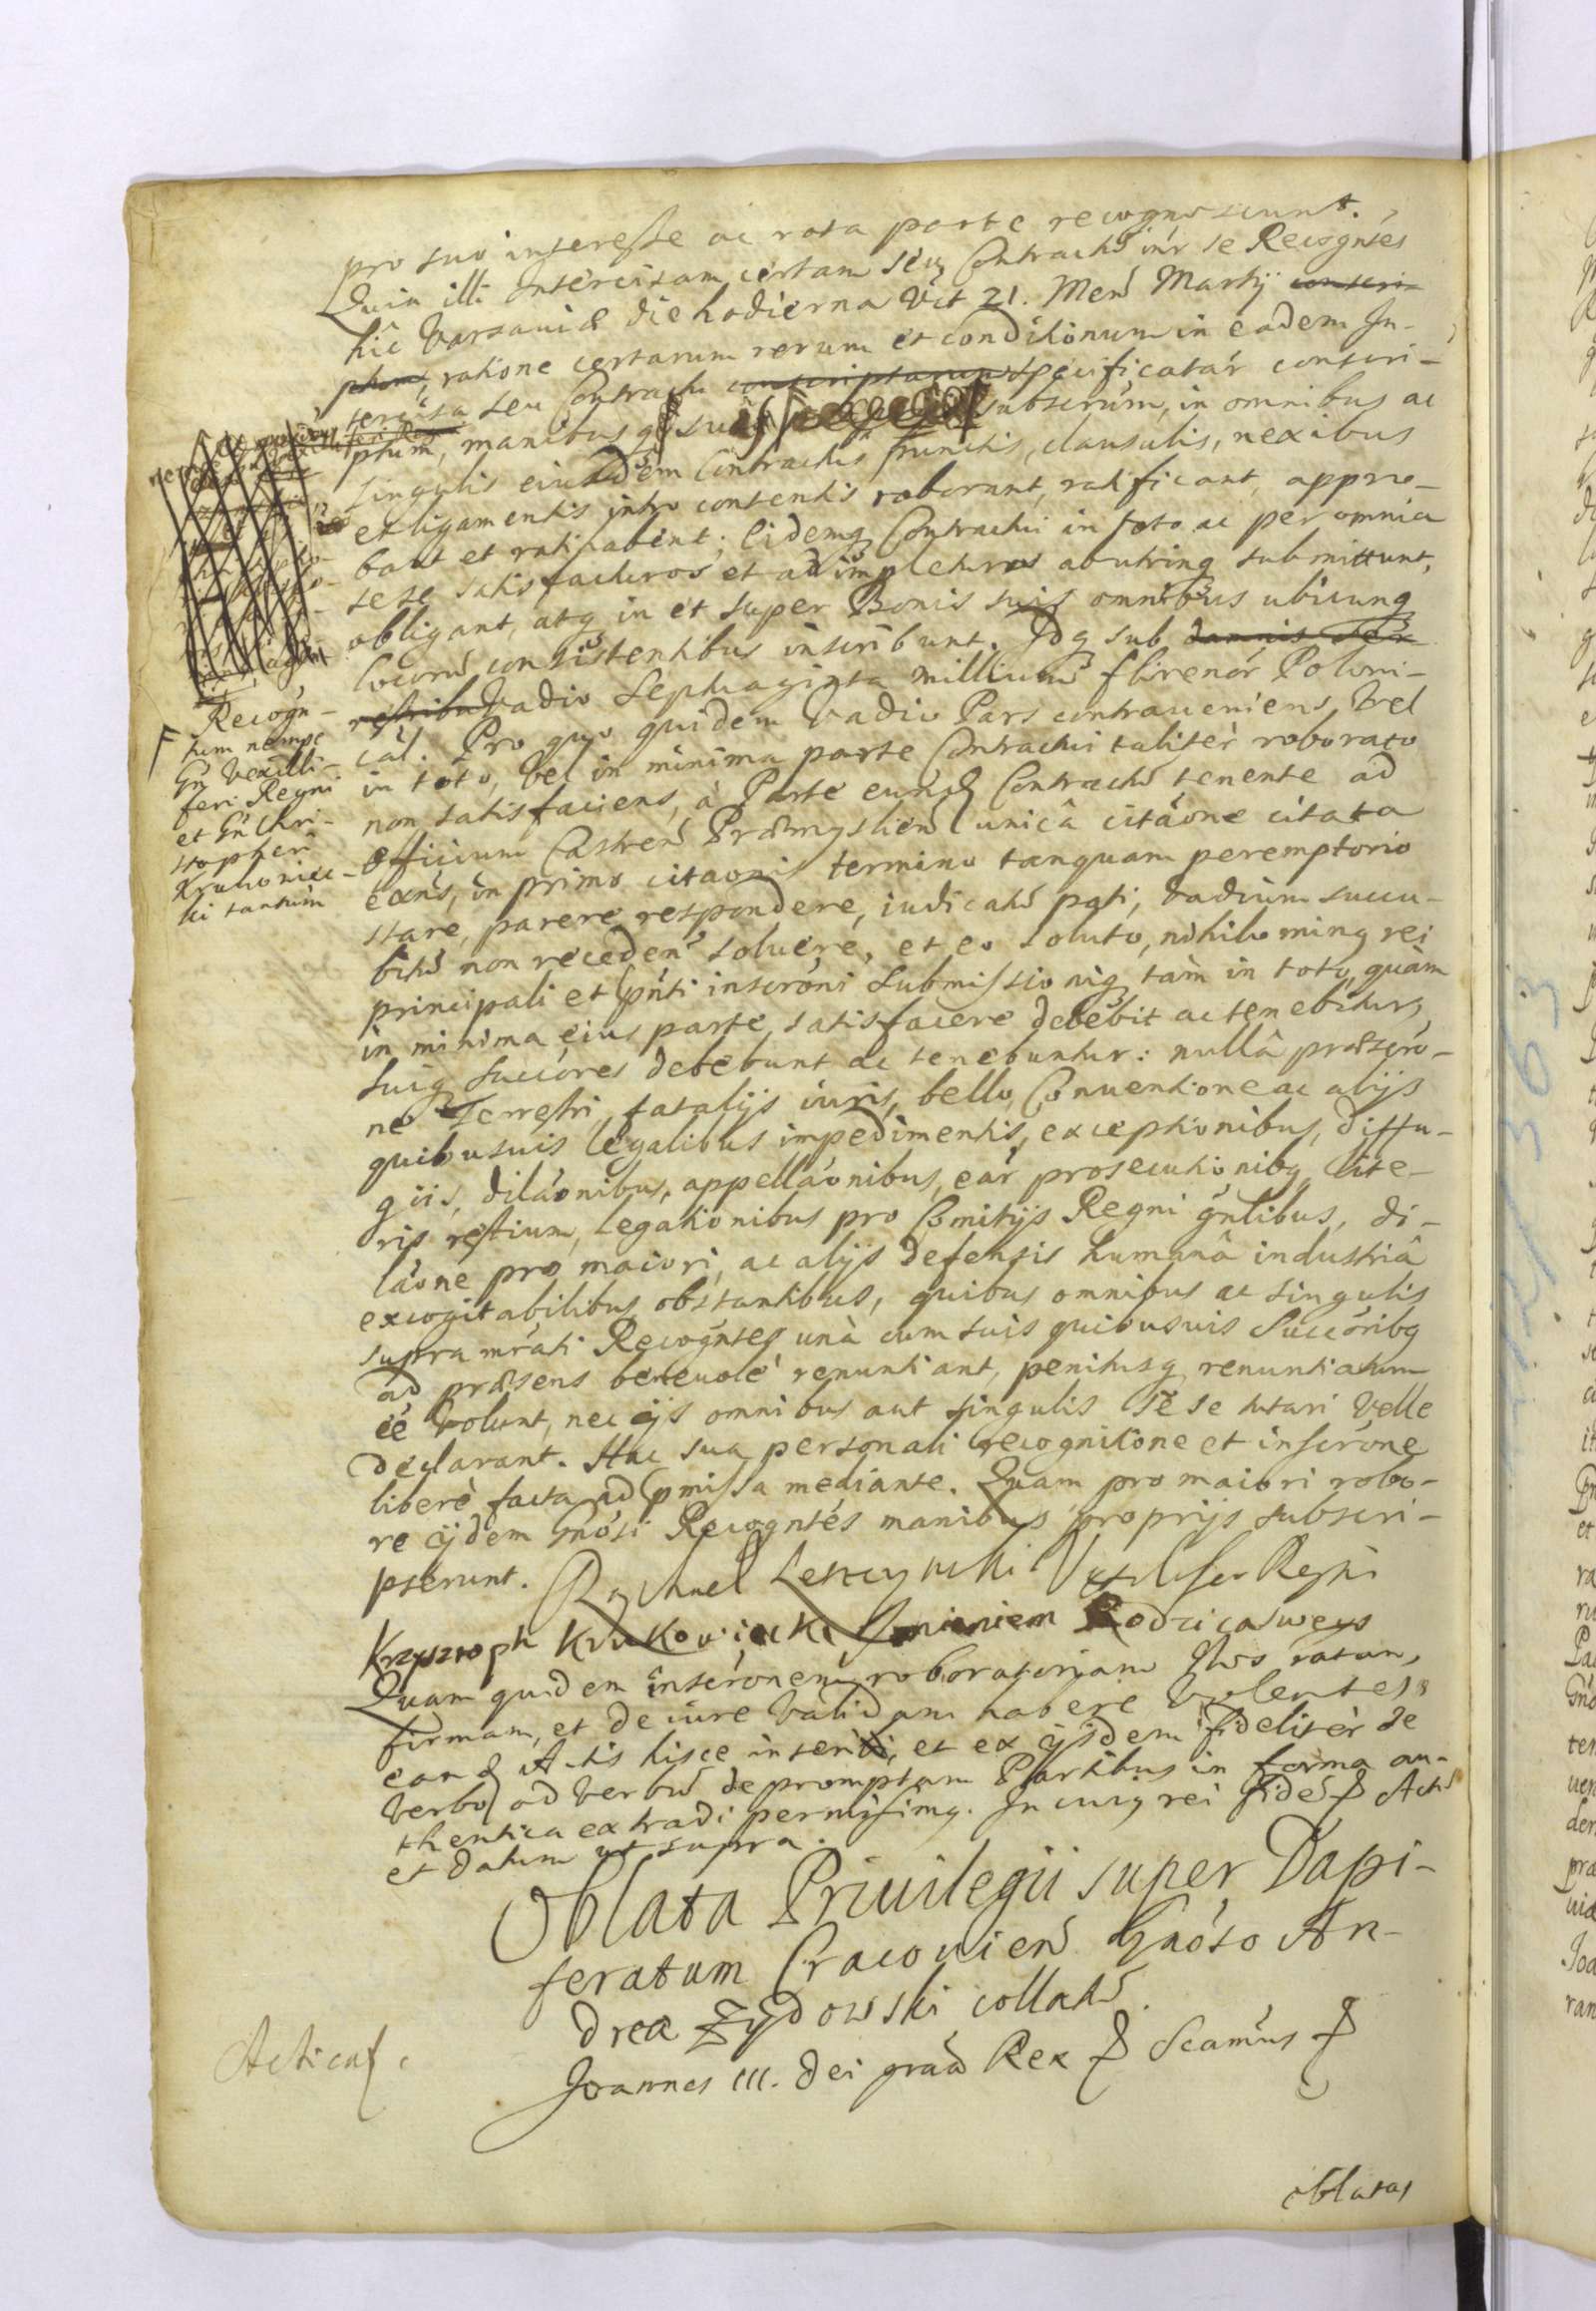 pro suo interesse ac rata parte recognoscunt.
Quia illi Intercisam certam seu Contractũ inr se Recogntes
hic Varsaviæ die hodierna vid 21. Mens Martij conscri-
ptum, ratione certarum rerum et conditionum in eadem In-
tercisa seu Contractu conscriptarum specificatar conscri-
ptum, manibusq suis subscrum, in omnibus ac
singulis eiusdem Contractus punctis, clausulis, nexibus
et ligamentis intro contentis roborant, ratificant, appro-
bant et ratihabent; Eidemq Contractui in toto ac per omnia
sese satisfacturos et adimpleturos abutrinq submittunt,
obligant, atq in et super Bonis suis omnibus ubicunq
locorũ consistentibus inscribunt. Idq sub damnis ter
restribu Vadio Septuaginta millium flirenor Poloni-
cal. Pro quo quidem Vadio Pars contraueniens, Vel
in toto, Vel in minima parte Contractui taliter roborato
non satisfaciens, à Parte eund Contractũ tenente ad
Officium Castren Præmyslien unicâ citaone citata
exns, in primo citaonis termino tanquam peremptorio
stare, parere, respondere, iudicatũ pati, Vadium succu-
bitũ non receden soluere, et eo soluto, nihilominq rei
principali et pnti inscroni Submissioniq tàm in toto, quàm
in minima eius parte, satisfacere debebit ac tenebitur,
suiq Succores debebunt ac tenebuntur: nullâ præscro-
ne Terrestri, fatalijs iuris, bello, Conuentione ac alijs
quibusuis legalibus impedimentis, exceptionibus, diffu-
giis, dilaonibus, appellaonibus, ear prosecutionibq lite-
ris restium, legationibus pro Comitijs Regni gnlibus, di-
laone pro maiori, ac alijs defensis humanâ industriâ
excogitabilibus obstantibus, quibus omnibus ac singulis
supra mrati Recogntes unà cum suis quibusuis Succoribq
ad præsens beneuole renuntiant, penitusq renuntiatum
ee volunt, nec ijs omnibus aut singulis se se tutari Velle
declarant. Hac sua personali recognitione et inscrone
liberè facta ad pmissa mediante. Quam pro maiori robo-
re ijdem Gnosi Recogntes manibus proprijs subscri-
pserunt. Raphael Leszczynski Vexilifer Regni
Krzysztoph Krukowiecki Imieniem Rodzica swego
Quam quidem inscronem roboratoriam Nos ratam,
firmam, et de iure Validam habere Volentes
eand Actis hisce inseri, et ex ijsdem fideliter de
Verbo ad verbũ depromptam Partibus in forma au-
thentica extradi permisimq. In cuiq rei fidem Actũ
et datum ut supra.
Recogn-
tium nempe
Gn Vexilli-
feri Regni
et Gn Chri-
stopheri
Krukoniec-
ki tantùm
Oblata Priuilegii super Dapi-
feratum Cracouien Gnoso An-
dreæ Żydowski collati.
Joannes III. Dei graa Rex Scamus
Acticat
oblatas